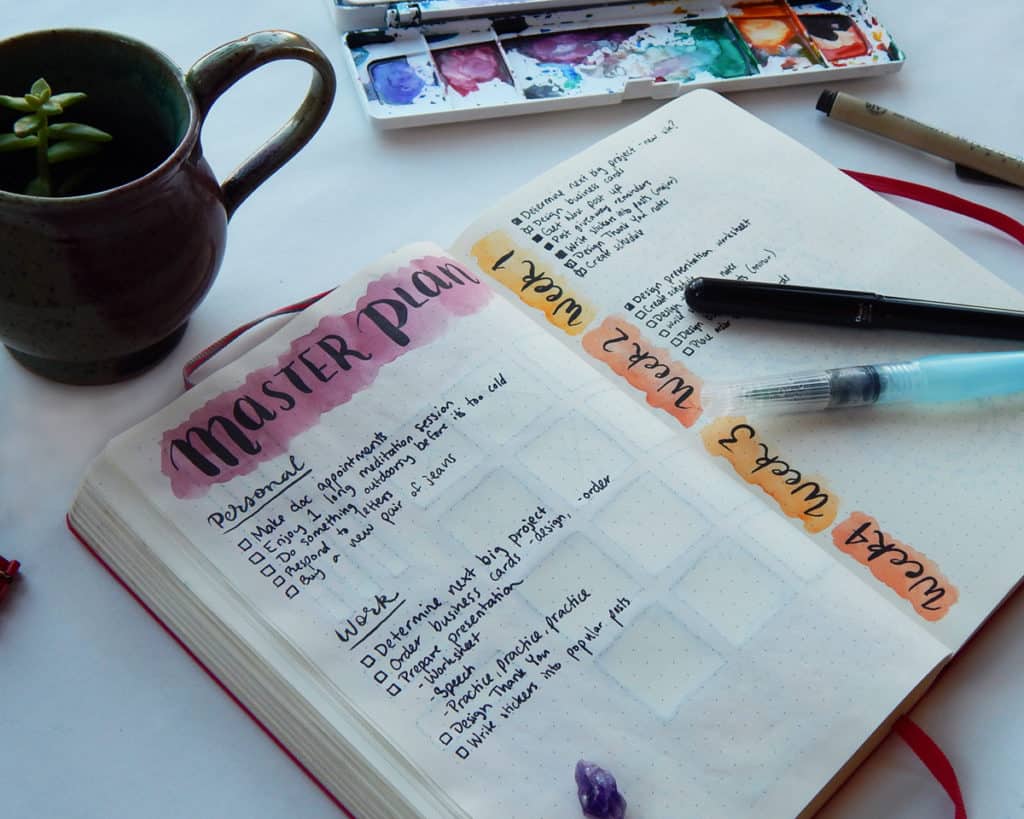 MASTER PLAN
Personal
Make doc appointments
Enjoy 1 long meditation session
Do something outdoorsy before it's too cold
Respond to letters
Buy a new pair of jeans
Work
Determine next big project
Order business cards -design, -order
Prepare presentation
-Worksheet
-Speech
-Practice, practice, practice
Design Thank You
Write stickers into popular posts
Week 1
Determine next big project -new vid?
Design business cards
Get Nov post up
Post giveaway reminders
Write stickers into posts (major)
Design Thank You notes
Create schedule
Week 2
Design presentation worksheet
Create schedule
Design notes
Write (minor)
Design
Place order
Week 3
Week 4